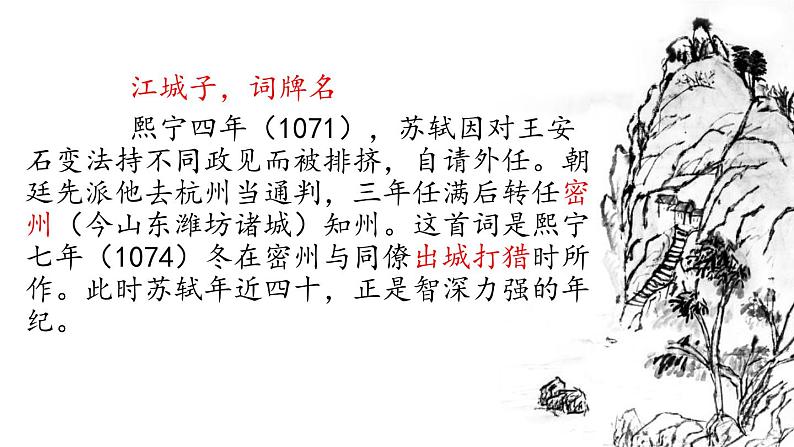 江城子，词牌名
熙宁四年（1071），苏轼因对王安
石变法持不同政见而被排挤，自请外任。朝
廷先派他去杭州当通判，三年任满后转任密
州（今山东潍坊诸城）知州。这首词是熙宁
七年（1074）冬在密州与同僚出城打猎时所
作。此时苏轼年近四十，正是智深力强的年
纪。